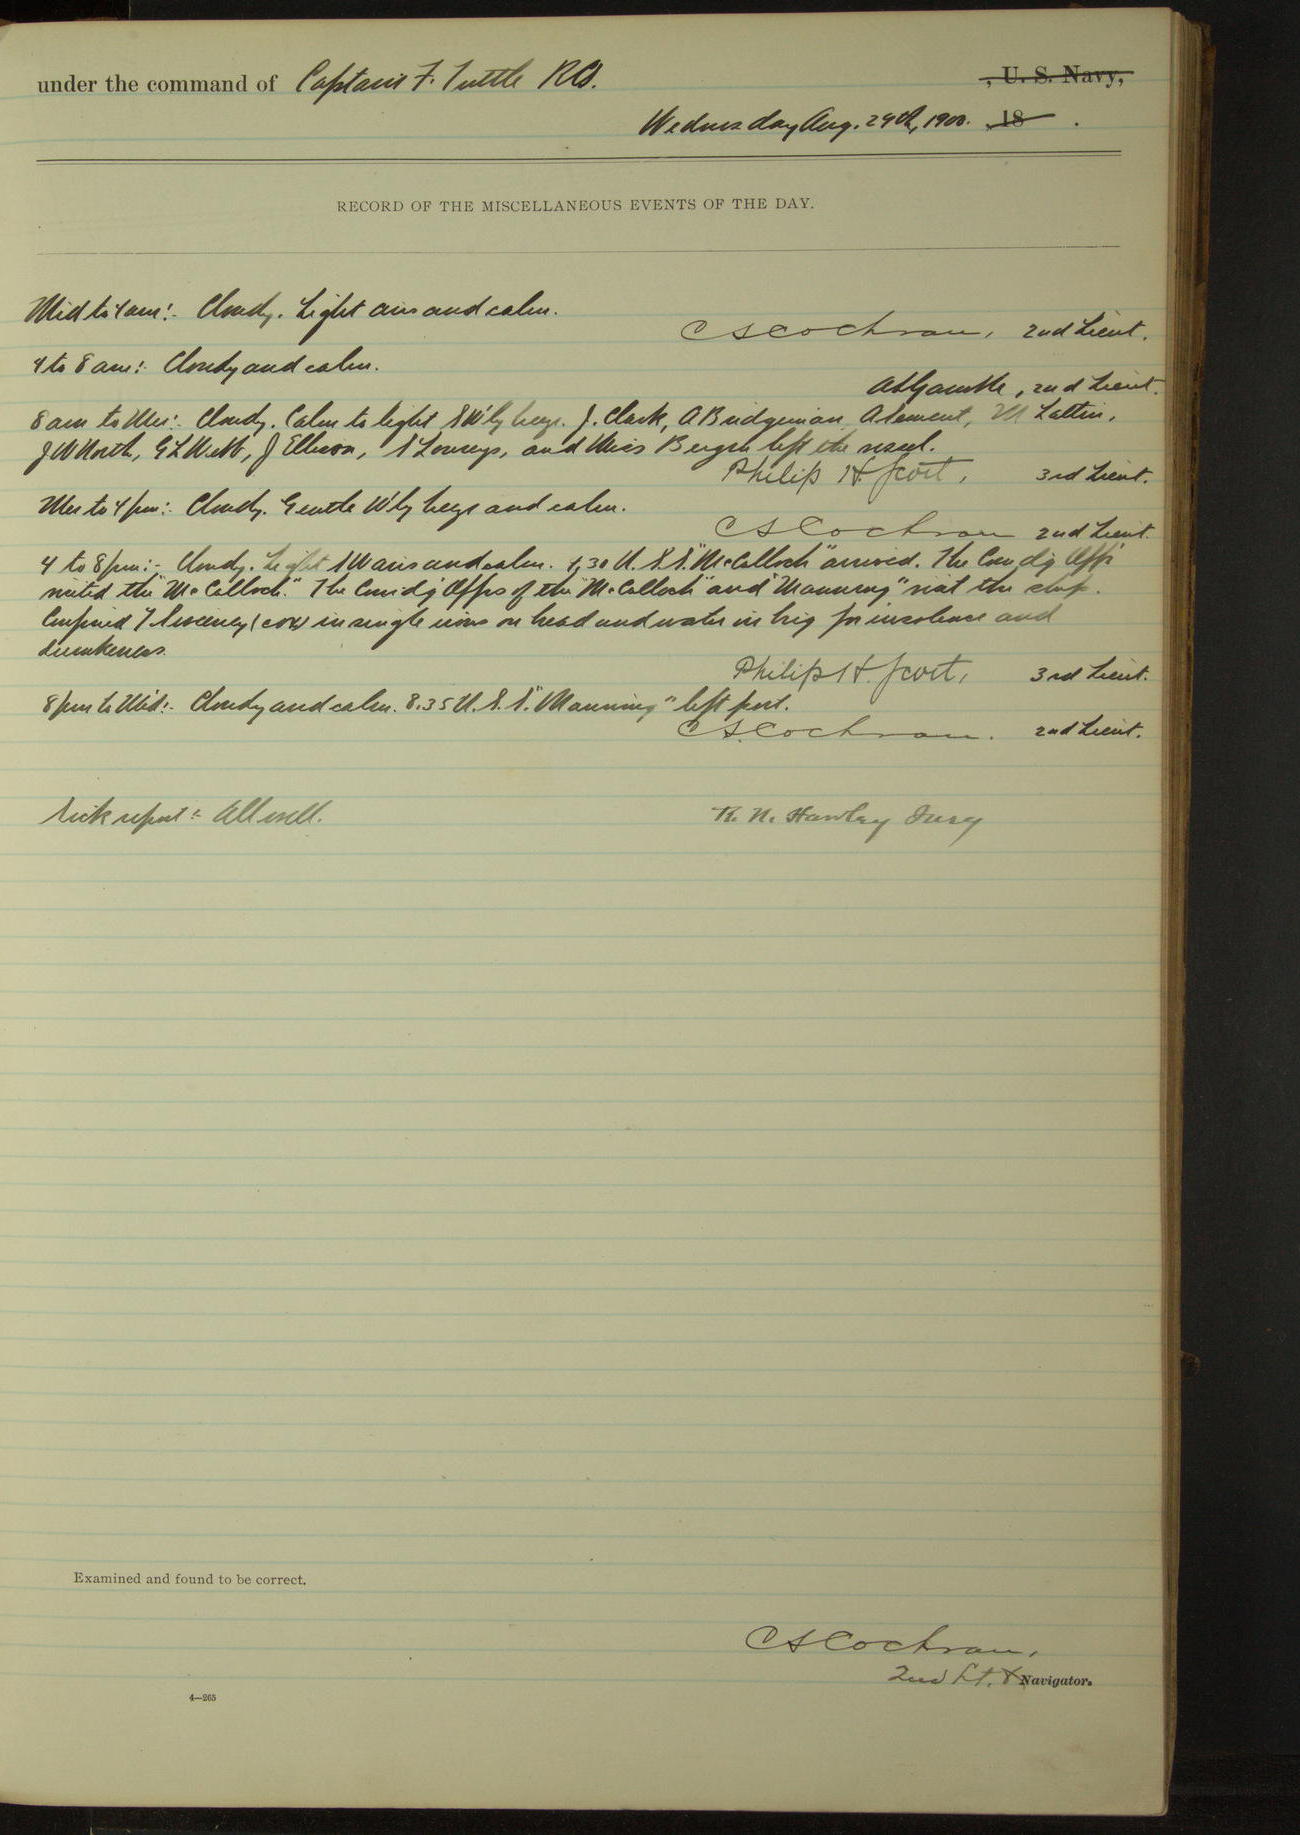 under the command of Captain F. Tuttle R.C.S. , U. S. Navy,
Wednesday Aug. 29th, 1900. 18 .
RECORD OF THE MISCELLANEOUS EVENTS OF THE DAY.
Mid to 4 am:- Cloudy. Light airs and calm.
C S Cochran, 2nd Lieut.
4 to 8 am:- Cloudy and calm.
A H Gamble, 2nd Lieut.
8 am to Mer:- Cloudy. Calm to light SW'ly breeze. J. Clark, A Bridgeman, A Lement, M Lattin,
J W North, G L Webb, J Ellison, S Lowrys, and Miss Bergh left the vessel.
Philip H. Scott, 3rd Lieut.
Mer to 4 pm:- Cloudy. Gentle W'ly breeze and calm.
C S Cochran 2nd Lieut.
4 to 8 pm:- Cloudy. Light SW airs and calm. 4,30 U. S. S. "McCulloch" arrived. The Com'd'g Off'r
visited the "McCulloch." The Com'd'g Offrs of the "McCulloch" and "Manning" visit the ship.
Confined T Sweeney (cox) in single irons on bread and water in brig for insolence and
drunkeness.
Philip H. Scott, 3rd Lieut.
8 pm to Mid:- Cloudy and calm. 8.35 U. S. S. "Manning" left port.
C S. Cochran. 2nd Lieut.
Sick report:- All well. R. N. Hawley Surg
Examined and found to be correct.
C S Cochran,
2nd Lt. & Navigator.
4—265